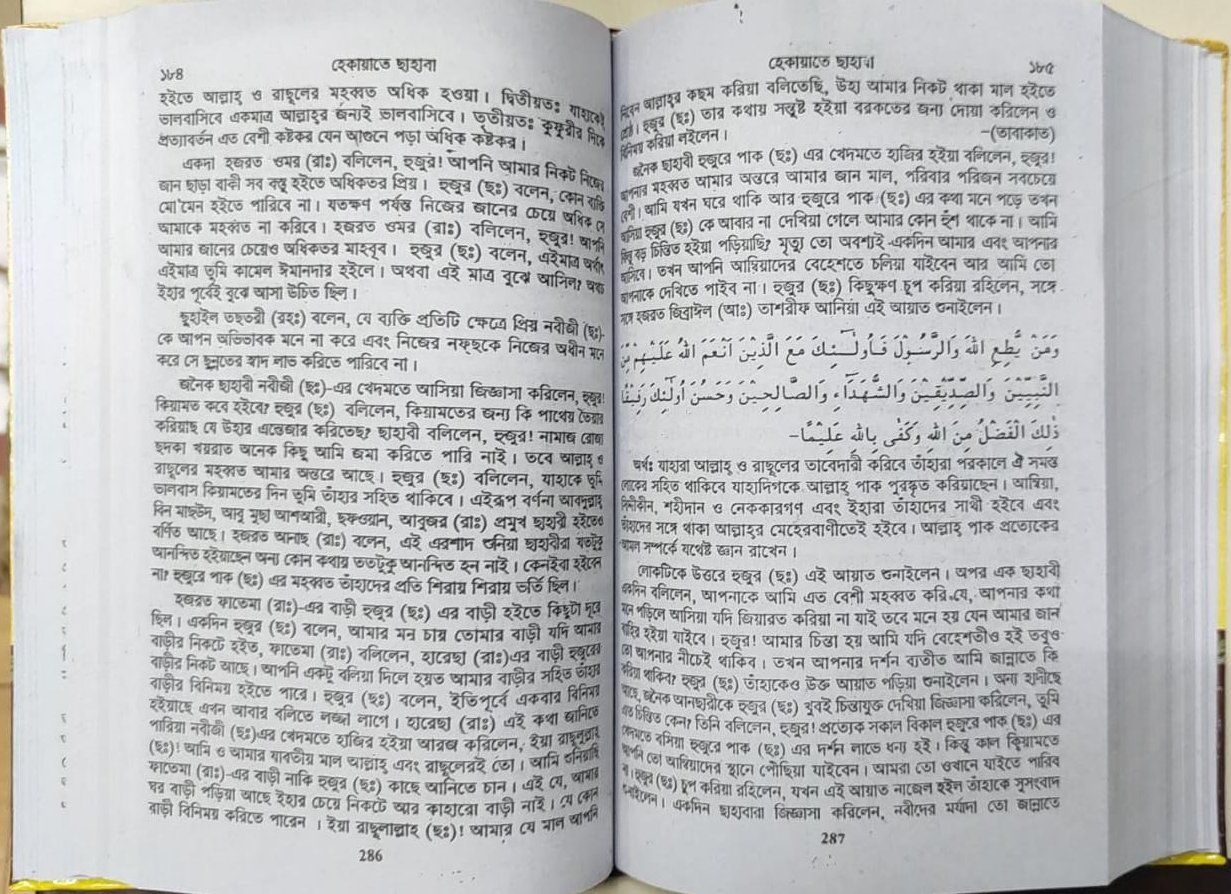 ১৮৪
হেকায়াতে ছাহাবা
হইতে আল্লাহ্ ও রাছুলের মহব্বত অধিক হওয়া। দ্বিতীয়তঃ যাহাকেই
ভালবাসিবে একমাত্র আল্লাহর জন্যই ভালবাসিবে। তৃতীয়তঃ কুফুরীর দিকে
প্রত্যাবর্তন এত বেশী কষ্টকর যেন আগুনে পড়া অধিক কষ্টকর।
একদা হজরত ওমর (রাঃ) বলিলেন, হুজুর! আপনি আমার নিকট নিজের
জান ছাড়া বাকী সব বস্তু হইতে অধিকতর প্রিয়। হুজুর (ছঃ) বলেন, কোন ব্যক্তি
মো'মেন হইতে পারিবে না। যতক্ষণ পর্যন্ত নিজের জানের চেয়ে অধিক সে
আমাকে মহব্বত না করিবে। হজরত ওমর (রাঃ) বলিলেন, হুজুর! আপনি
আমার জানের চেয়েও অধিকতর মাহবুব। হুজুর (ছঃ) বলেন, এইমাত্র অর্থাৎ
এইমাত্র তুমি কামেল ঈমানদার হইলে। অথবা এই মাত্র বুঝে আসিল? অথচ
ইহার পূর্বেই বুঝে আসা উচিত ছিল।
ছুহাইল তছতরী (রহঃ) বলেন, যে ব্যক্তি প্রতিটি ক্ষেত্রে প্রিয় নবীজী (ছঃ)-
কে আপন অভিভাবক মনে না করে এবং নিজের নফ্ছকে নিজের অধীন মনে
করে সে ছুন্নতের স্বাদ লাভ করিতে পারিবে না।
জনৈক ছাহাবী নবীজী (ছঃ)-এর খেদমতে আসিয়া জিজ্ঞাসা করিলেন, হুজুর!
কিয়ামত কবে হইবে? হুজুর (ছঃ) বলিলেন, কিয়ামতের জন্য কি পাথেয় তৈয়ার
করিয়াছ যে উহার এন্তেজার করিতেছ? ছাহাবী বলিলেন, হুজুর! নামাজ রোজা
ছদকা খয়রাত অনেক কিছু আমি জমা করিতে পারি নাই। তবে আল্লাহ্ ও
রাছুলের মহব্বত আমার অন্তরে আছে। হুজুর (ছঃ) বলিলেন, যাহাকে তুমি
ভালবাস কিয়ামতের দিন তুমি তাঁহার সহিত থাকিবে। এইরূপ বর্ণনা আবদুল্লাহ্
বিন মাছউদ, আবু মুছা আশআরী, ছফওয়ান, আবুজর (রাঃ) প্রমুখ ছাহাবী হইতেও
বর্ণিত আছে। হজরত আনাছ (রাঃ) বলেন, এই এরশাদ শুনিয়া ছাহাবীরা যতটুকু
আনন্দিত হইয়াছেন অন্য কোন কথায় ততটুকু আনন্দিত হন নাই। কেনইবা হইবেন
না? হুজুরে পাক (ছঃ) এর মহব্বত তাঁহাদের প্রতি শিরায় শিরায় ভর্তি ছিল।
হজরত ফাতেমা (রাঃ)-এর বাড়ী হুজুর (ছঃ) এর বাড়ী হইতে কিছুটা দূরে
ছিল। একদিন হুজুর (ছঃ) বলেন, আমার মন চায় তোমার বাড়ী যদি আমার
বাড়ীর নিকটে হইত, ফাতেমা (রাঃ) বলিলেন, হারেছা (রাঃ)এর বাড়ী হুজুরের
বাড়ীর নিকট আছে। আপনি একটু বলিয়া দিলে হয়ত আমার বাড়ীর সহিত তাঁহার
বাড়ীর বিনিময় হইতে পারে। হুজুর (ছঃ) বলেন, ইতিপূর্বে একবার বিনিময়
হইয়াছে এখন আবার বলিতে লজ্জা লাগে। হারেছা (রাঃ) এই কথা জানিতে
পারিয়া নবীজী (ছঃ)এর খেদমতে হাজির হইয়া আরজ করিলেন, ইয়া রাছুলুল্লাহ্
(ছঃ)! আমি ও আমার যাবতীয় মাল আল্লাহ্ এবং রাছুলেরই তো। আমি শুনিয়াছি
ফাতেমা (রাঃ)-এর বাড়ী নাকি হুজুর (ছঃ) কাছে আনিতে চান। এই যে, আমার
ঘর বাড়ী পড়িয়া আছে ইহার চেয়ে নিকটে আর কাহারো বাড়ী নাই। যে কোন
বাড়ী বিনিময় করিতে পারেন। ইয়া রাছুলাল্লাহ্ (ছঃ)! আমার যে মাল আপনি
286
হেকায়াতে ছাহাবা
১৮৫
নিবেন আল্লাহর কছম করিয়া বলিতেছি, উহা আমার নিকট থাকা মাল হইতে
শ্রেষ্ঠ। হুজুর (ছঃ) তার কথায় সন্তুষ্ট হইয়া বরকতের জন্য দোয়া করিলেন ও
বিনিময় করিয়া লইলেন।
–(তাবাকাত)
জনৈক ছাহাবী হুজুরে পাক (ছঃ) এর খেদমতে হাজির হইয়া বলিলেন, হুজুর!
আপনার মহব্বত আমার অন্তরে আমার জান মাল, পরিবার পরিজন সবচেয়ে
বেশী। আমি যখন ঘরে থাকি আর হুজুরে পাক (ছঃ) এর কথা মনে পড়ে তখন
আসিয়া হুজুর (ছঃ) কে আবার না দেখিয়া গেলে আমার কোন হুঁশ থাকে না। আমি
কিন্তু বড় চিন্তিত হইয়া পড়িয়াছি? মৃত্যু তো অবশ্যই একদিন আমার এবং আপনার
আসিবে। তখন আপনি আম্বিয়াদের বেহেশতে চলিয়া যাইবেন আর আমি তো
আপনাকে দেখিতে পাইব না। হুজুর (ছঃ) কিছুক্ষণ চুপ করিয়া রহিলেন, সঙ্গে
সঙ্গে হজরত জিব্রাঈল (আঃ) তাশরীফ আনিয়া এই আয়াত শুনাইলেন।
وَمَنْ يُّطِعِ اللّٰهَ وَالرَّسُوْلَ فَأُولٰٓئِكَ مَعَ الَّذِيْنَ اَنْعَمَ اللّٰهُ عَلَيْهِمْ مِّنَ
النَّبِيِّيْنَ وَالصِّدِّيْقِيْنَ وَالشُّهَدَآءِ وَالصَّالِحِيْنَ وَحَسُنَ اُولٰٓئِكَ رَفِيْقًا
ذٰلِكَ الْفَضْلُ مِنَ اللّٰهِ وَكَفٰى بِاللّٰهِ عَلِيْمًا–
অর্থঃ যাহারা আল্লাহ্ ও রাছুলের তাবেদারী করিবে তাঁহারা পরকালে ঐ সমস্ত
লোকের সহিত থাকিবে যাহাদিগকে আল্লাহ্ পাক পুরস্কৃত করিয়াছেন। আম্বিয়া,
ছিদ্দীকীন, শহীদান ও নেককারগণ এবং ইহারা তাঁহাদের সাথী হইবে এবং
তাঁহাদের সঙ্গে থাকা আল্লাহ্‌র মেহেরবাণীতেই হইবে। আল্লাহ্ পাক প্রত্যেকের
আমল সম্পর্কে যথেষ্ট জ্ঞান রাখেন।
লোকটিকে উত্তরে হুজুর (ছঃ) এই আয়াত শুনাইলেন। অপর এক ছাহাবী
একদিন বলিলেন, আপনাকে আমি এত বেশী মহব্বত করি যে, আপনার কথা
মনে পড়িলে আসিয়া যদি জিয়ারত করিয়া না যাই তবে মনে হয় যেন আমার জান
বাহির হইয়া যাইবে। হুজুর! আমার চিন্তা হয় আমি যদি বেহেশতীও হই তবুও
তো আপনার নীচেই থাকিব। তখন আপনার দর্শন ব্যতীত আমি জান্নাতে কি
করিয়া থাকিব? হুজুর (ছঃ) তাঁহাকেও উক্ত আয়াত পড়িয়া শুনাইলেন। অন্য হাদীছে
আছে, জনৈক আনছারীকে হুজুর (ছঃ) খুবই চিন্তাযুক্ত দেখিয়া জিজ্ঞাসা করিলেন, তুমি
এত চিন্তিত কেন? তিনি বলিলেন, হুজুর! প্রত্যেক সকাল বিকাল হুজুরে পাক (ছঃ) এর
খেদমতে বসিয়া হুজুরে পাক (ছঃ) এর দর্শন লাভে ধন্য হই। কিন্তু কাল কিয়ামতে
আপনি তো আম্বিয়াদের স্থানে পৌঁছিয়া যাইবেন। আমরা তো ওখানে যাইতে পারিব
না। হুজুর (ছঃ) চুপ করিয়া রহিলেন, যখন এই আয়াত নাজেল হইল তাঁহাকে সুসংবাদ
শুনাইলেন। একদিন ছাহাবারা জিজ্ঞাসা করিলেন, নবীদের মর্যাদা তো জান্নাতে
287